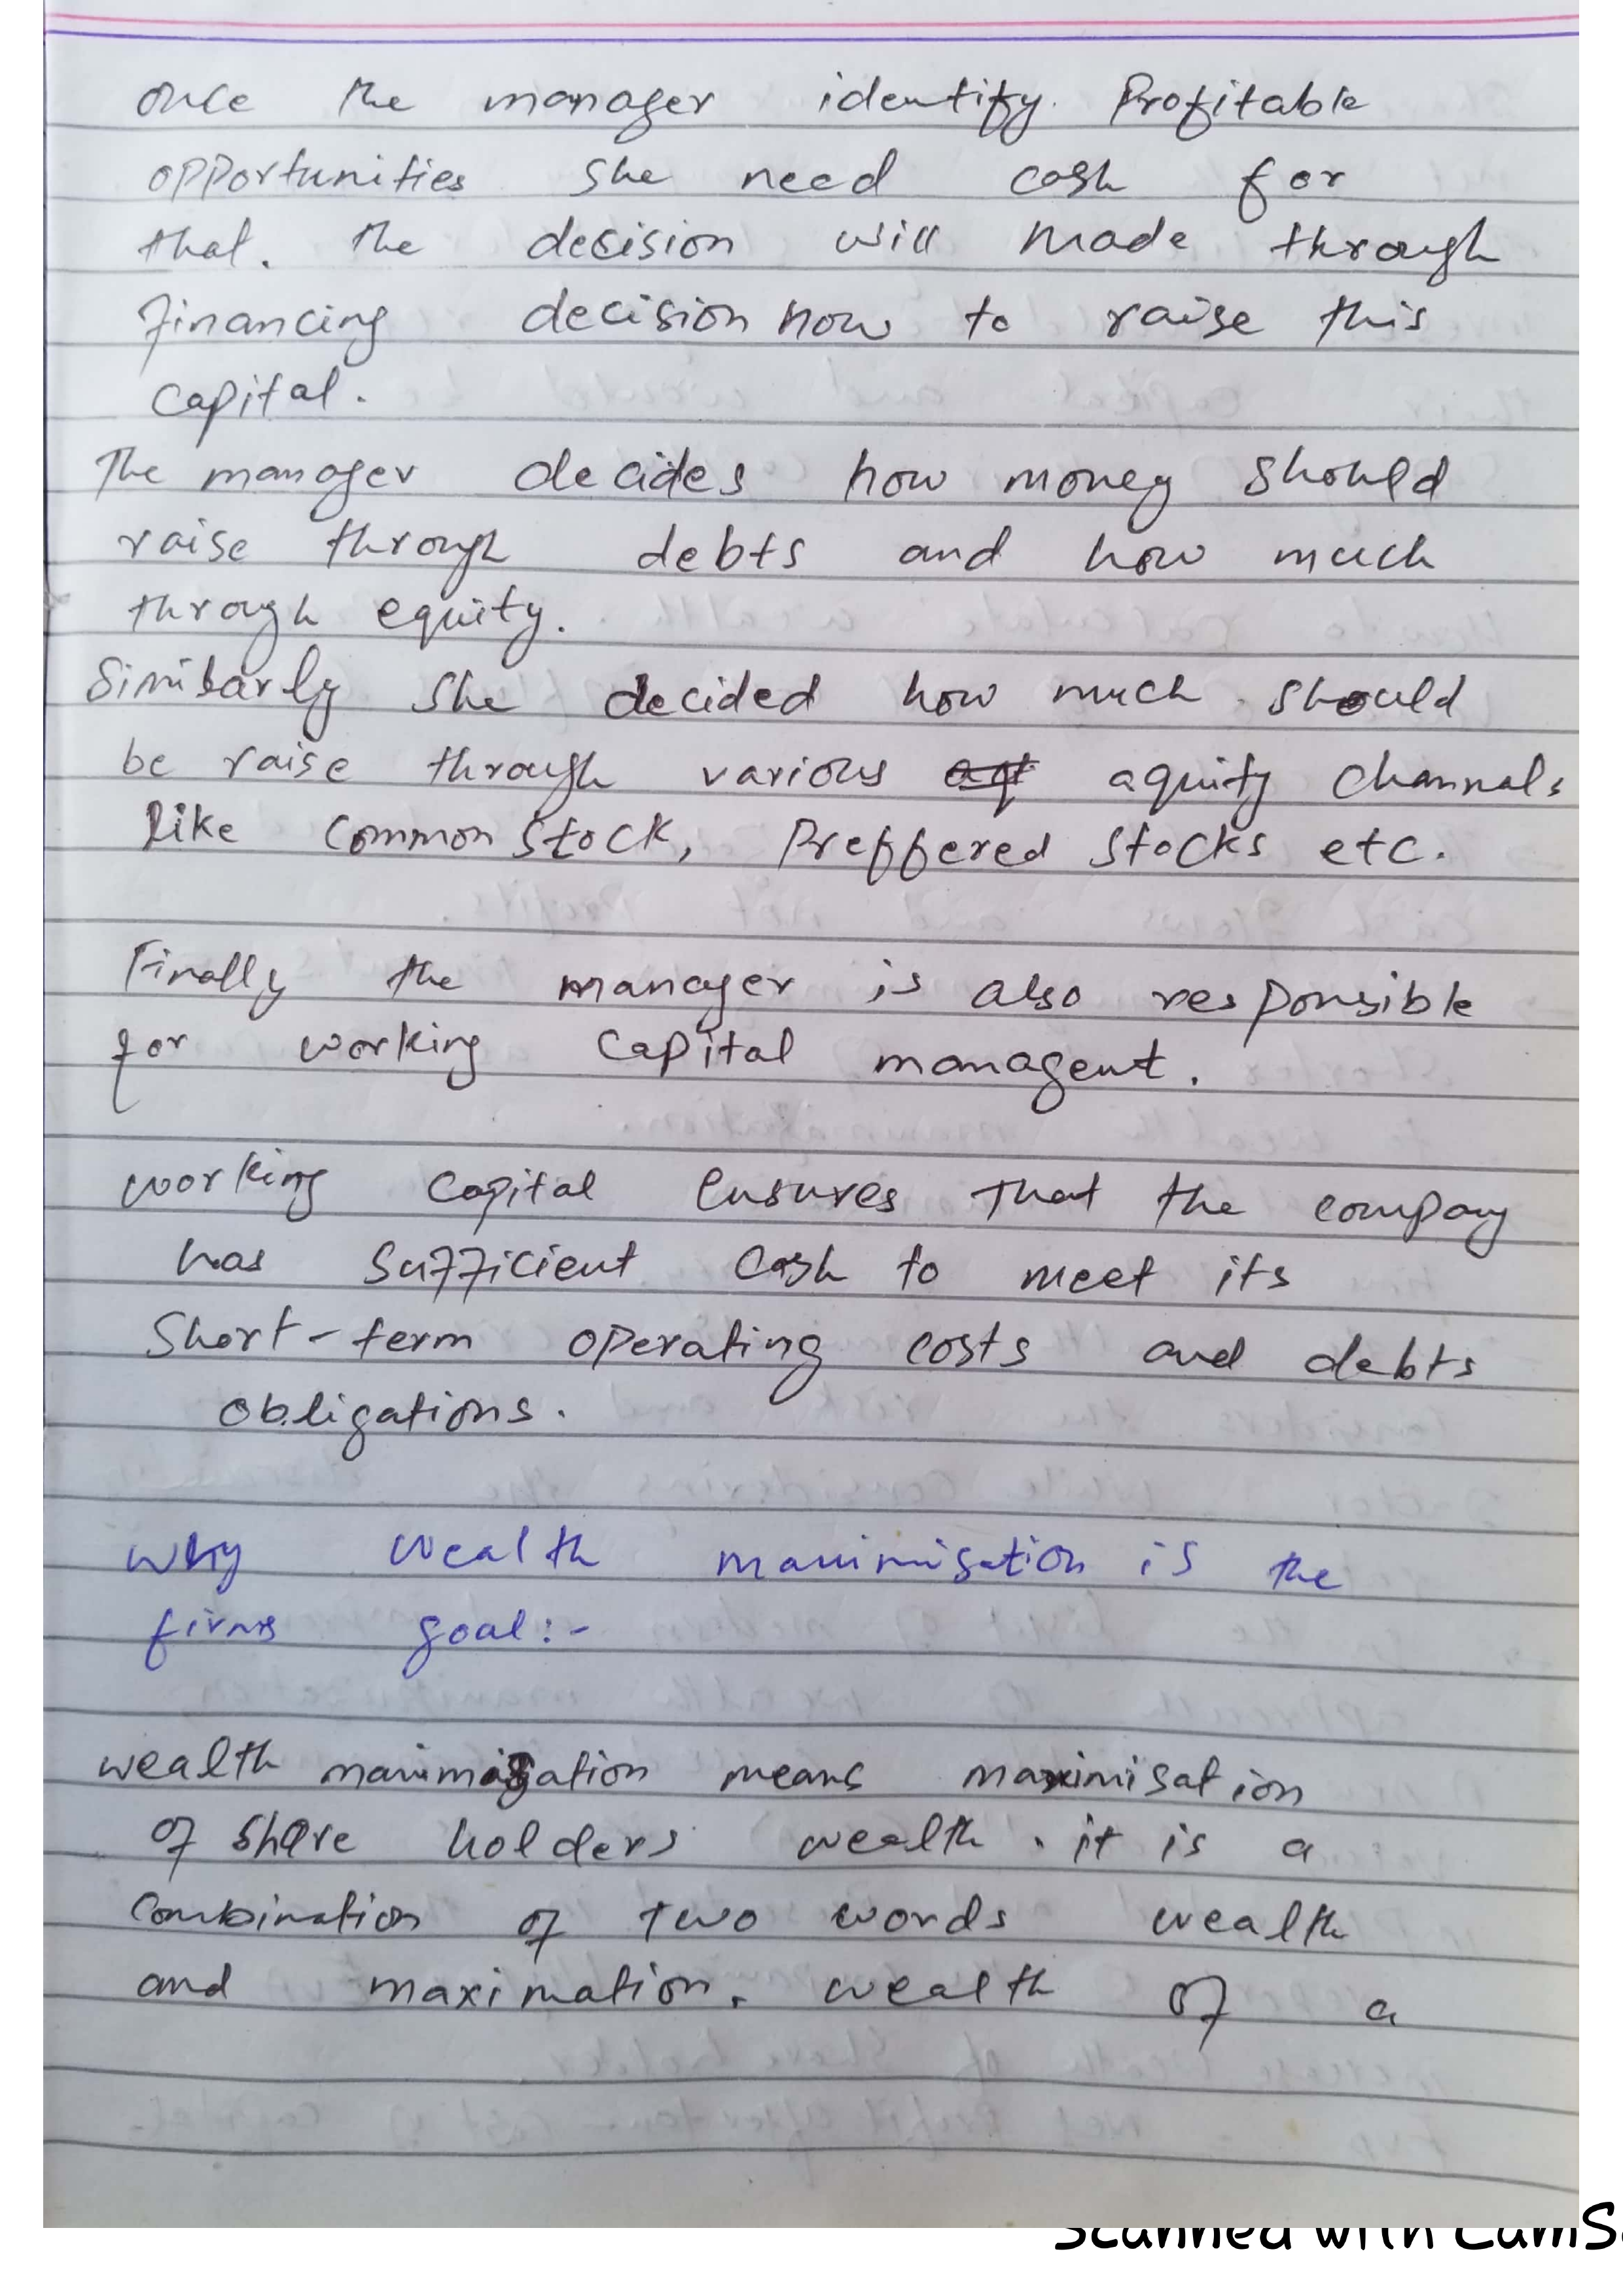 once the manager identify. Profitable
opportunities she need cash for
that. the decision will made through
financing decision how to raise this
capital.
The manager decides how money should
raise through debts and how much
through equity.
Similarly she decided how much should
be raise through various aquity channals
like common stock, Preffered stocks etc.
Finally the manager is also responsible
for working capital managent.
working capital ensures that the company
has sufficient cash to meet its
Short-term operating costs and debts
obligations.
why wealth maximisation is the
firms goal:-
wealth maximisation means maximisation
of share holders wealth. it is a
combination of two words wealth
and maximation. wealth of a
Scanned with CamS